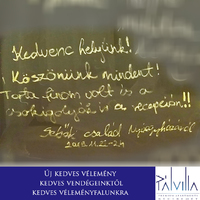 Kedvenc helyünk!
Köszönünk mindent!
Torta finom volt és a
csokigolyók is a recepción!!
Sebők család Nyíregyházáról
ÚJ KEDVES VÉLEMÉNY
KEDVES VENDÉGEINKTŐL
KEDVES VÉLEMÉNYFALUNKRA
PÁLVILLA